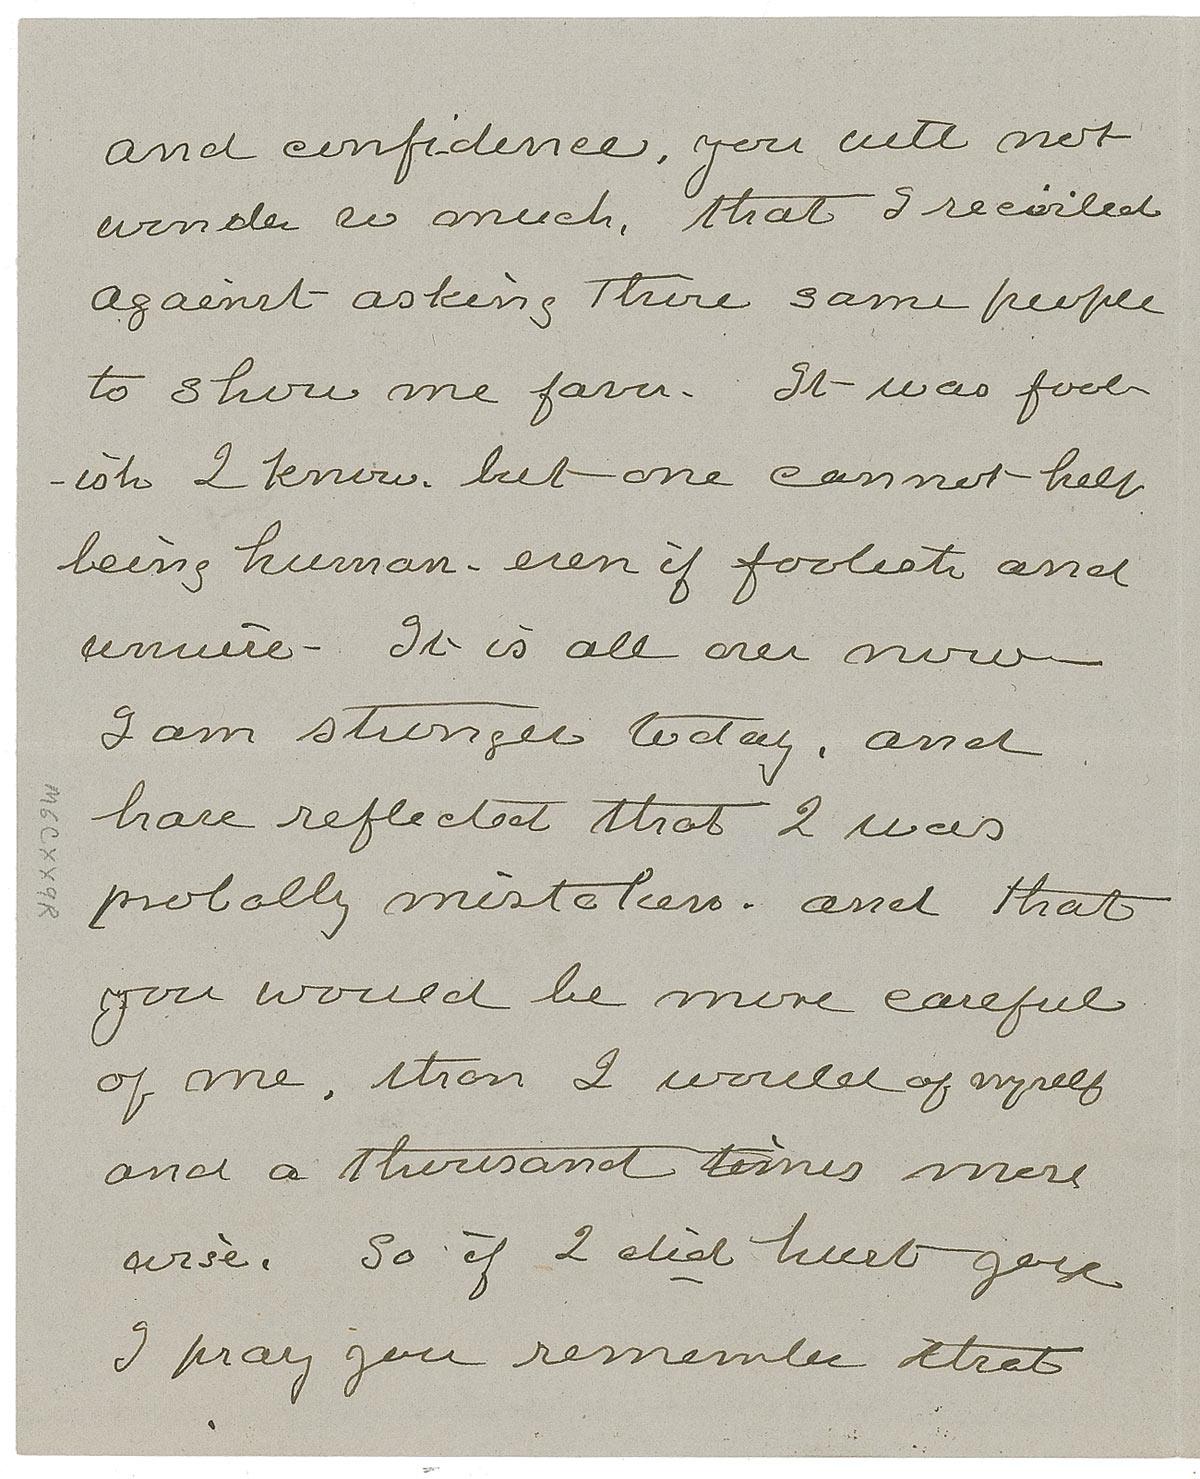 and confidence, you will not
wonder so much, that I recoiled
against asking these same people
to show me favor. It was fool-
-ish I know. but one cannot help
being human - even if foolish and
unwise - It is all over now -
I am stronger today, and
have reflected that I was
probally mistaken. and that
you would be more careful
of me, than I would of myself
and a thousand times more
wise. So if I did hurt you
I pray you remember that